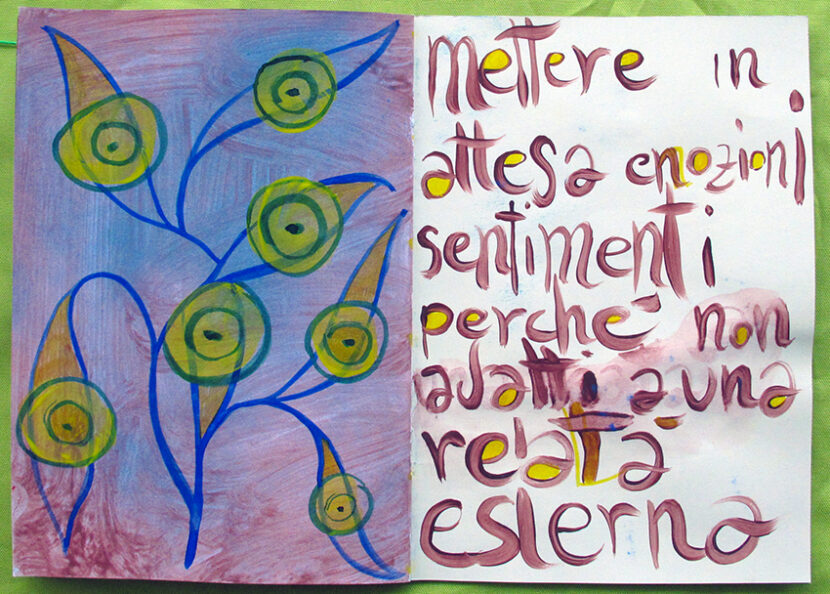 mettere in
attesa emozioni
sentimenti
perché non
adatti a una
realtà
esterna